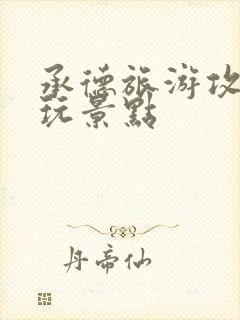 承德旅游攻
玩景點
丹帝仙